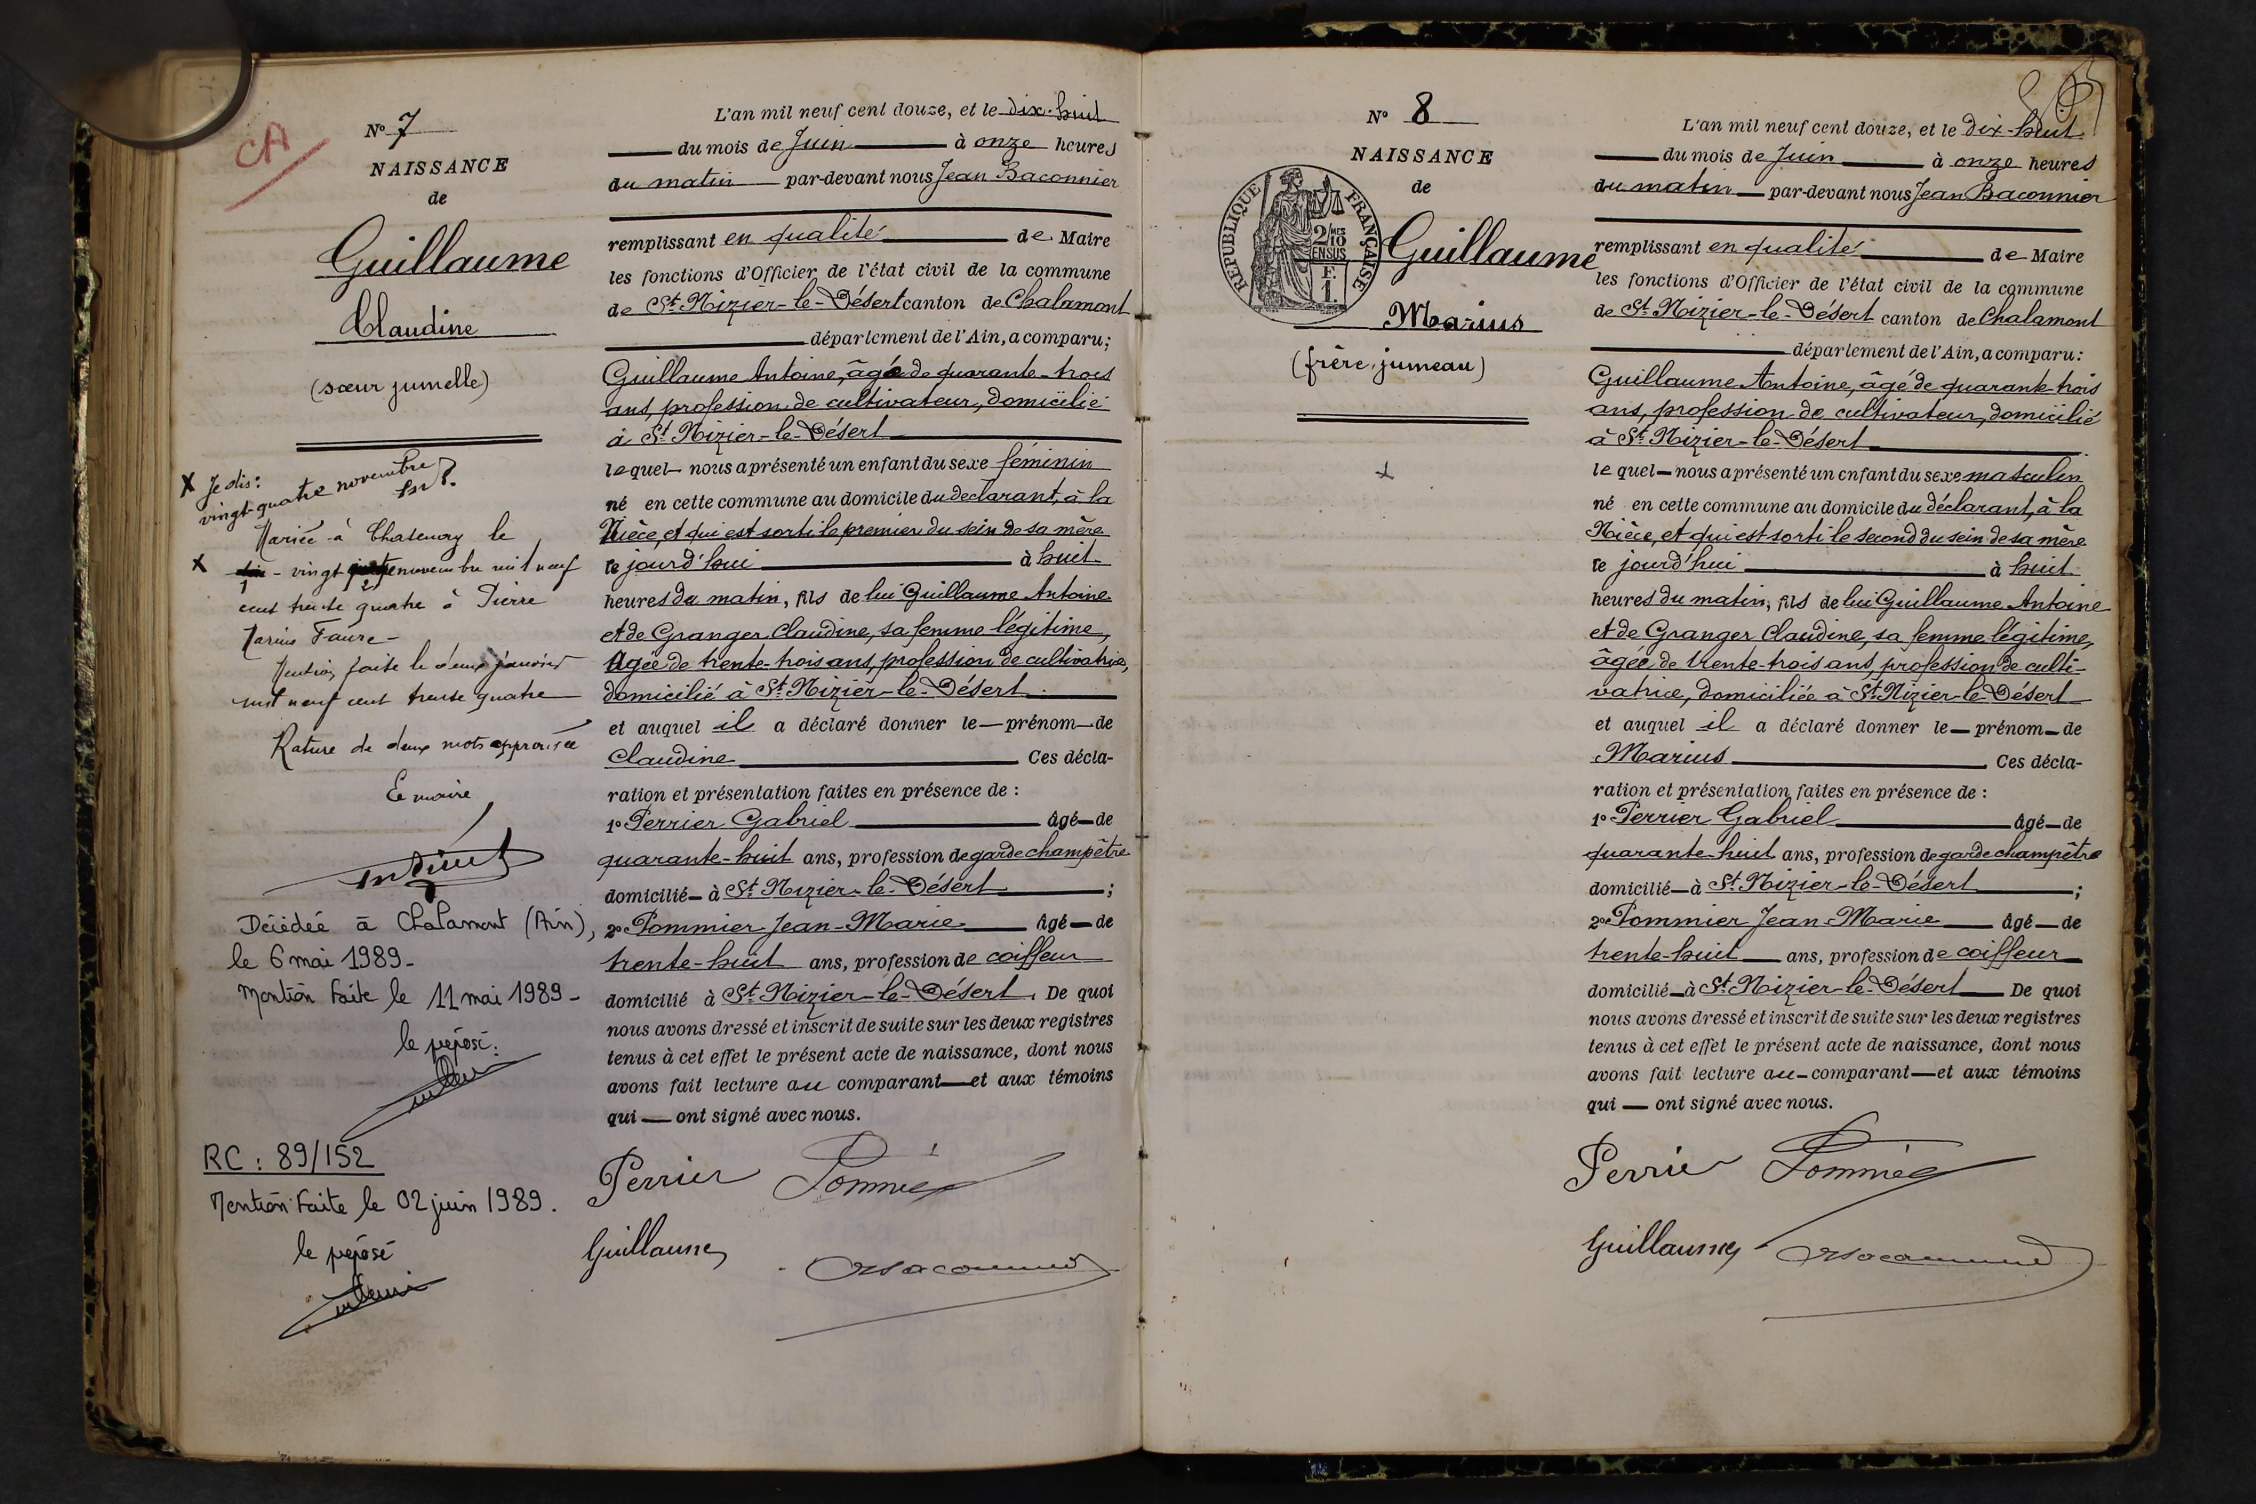 CA
Nº 7
NAISSANCE
de
Guillaume
Claudine
(sœur jumelle)
X Je dis:
vingt-quatre novembre
Mariée à Chatenay le
X vingt novembre mil neuf
cent trente quatre à Pierre
Marius Faure-
Mention faite le deux janvier
mil neuf cent trente quatre
Rature de deux mots approuvée
Le maire
Décédée à Chalamont (Ain),
le 6 mai 1989-
Mention faite le 11 mai 1989-
le préposé:
RC : 89/152
Mention faite le 02 juin 1989.
le préposé
L'an mil neuf cent douze, et le dix-huit
du mois de Juin à onze heures
du matin par-devant nous Jean Baconnier
remplissant en qualité de Maire
les fonctions d'Officier de l'état civil de la commune
de St Nizier-le-Désert canton de Chalamont
département de l'Ain, a comparu;
Guillaume Antoine, âgé de quarante-trois
ans, profession de cultivateur, domicilié
à St Nizier-le-Désert
lequel nous a présenté un enfant du sexe féminin
né en cette commune au domicile du déclarant, à la
Nièce, et qui est sorti le premier du sein de sa mère
le jourd'hui à huit
heures du matin, fils de lui Guillaume Antoine
et de Granger Claudine, sa femme légitime,
Agée de trente-trois ans, profession de cultivatrice,
domicilié à St Nizier-le-Désert
et auquel il a déclaré donner le prénom de
Claudine Ces décla-
ration et présentation faites en présence de :
1º Perrier Gabriel âgé de
quarante-huit ans, profession de garde champêtre
domicilié à St Nizier-le-Désert ;
2º Pommier Jean-Marie âgé de
trente-huit ans, profession de coiffeur
domicilié à St Nizier-le-Désert. De quoi
nous avons dressé et inscrit de suite sur les deux registres
tenus à cet effet le présent acte de naissance, dont nous
avons fait lecture au comparant et aux témoins
qui ont signé avec nous.
Perrier Pommier
Guillaume
Nº 8
NAISSANCE
de
RÉPUBLIQUE FRANÇAISE
2/10 MES
EN SUS
F.
1.
Guillaume
Marius
(frère jumeau)
L'an mil neuf cent douze, et le dix-huit
du mois de Juin à onze heures
du matin par-devant nous Jean Baconnier
remplissant en qualité de Maire
les fonctions d'Officier de l'état civil de la commune
de St Nizier-le-Désert canton de Chalamont
département de l'Ain, a comparu:
Guillaume Antoine, âgé de quarante-trois
ans, profession de cultivateur, domicilié
à St Nizier-le-Désert
le quel nous a présenté un enfant du sexe masculin
né en cette commune au domicile du déclarant, à la
Nièce, et qui est sorti le second du sein de sa mère
le jourd'hui à huit
heures du matin, fils de lui Guillaume Antoine
et de Granger Claudine, sa femme légitime,
âgée de trente-trois ans, profession de culti-
vatrice, domiciliée à St Nizier-le-Désert
et auquel il a déclaré donner le prénom de
Marius Ces décla-
ration et présentation faites en présence de :
1º Perrier Gabriel âgé de
quarante-huit ans, profession de garde champêtre
domicilié à St Nizier-le-Désert ;
2º Pommier Jean-Marie âgé de
trente-huit ans, profession de coiffeur
domicilié à St Nizier-le-Désert De quoi
nous avons dressé et inscrit de suite sur les deux registres
tenus à cet effet le présent acte de naissance, dont nous
avons fait lecture au comparant et aux témoins
qui ont signé avec nous.
Perrier Pommier
Guillaume